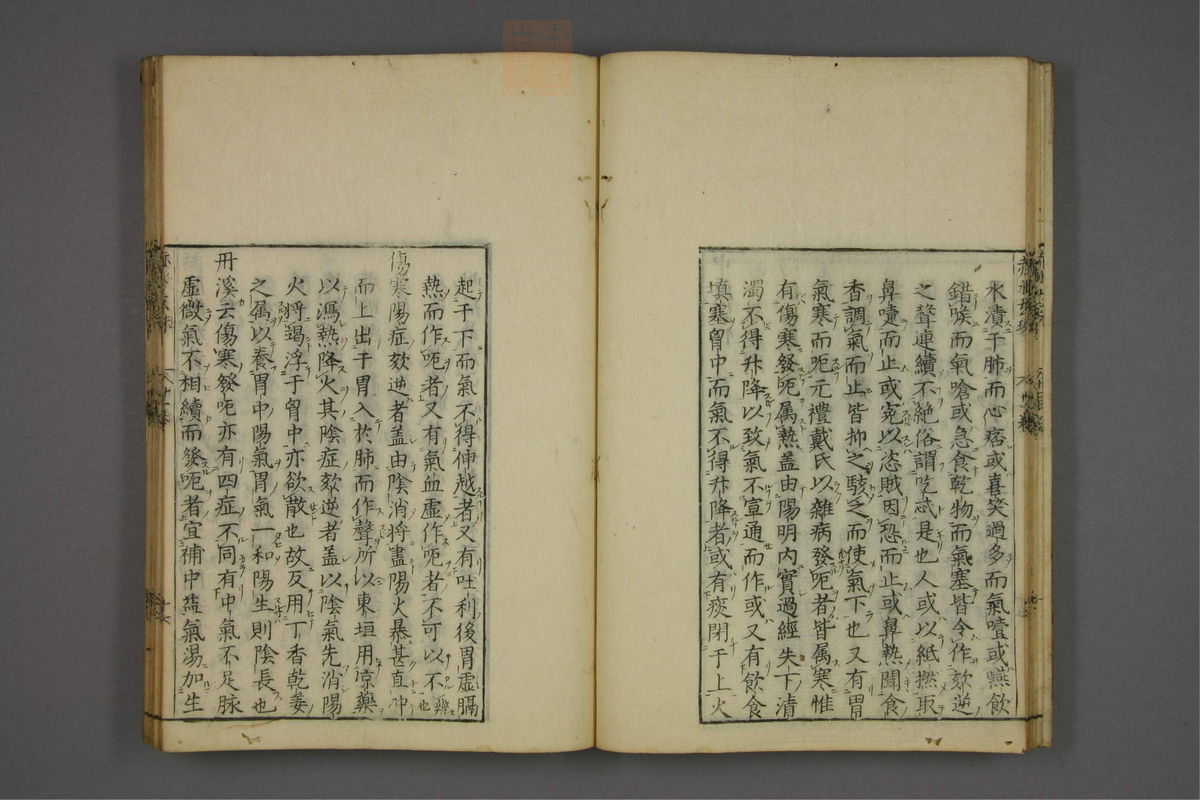 水漬于肺而心痞或喜笑過多而氣噎或燕飲
錯喉而氣嗆或急食乾物而氣塞皆令作欬逆
之聲連續不絶俗謂吃忒是也人或以紙撚取
鼻嚏而止或寃以恣賊因恐而止或鼻熱聞食
香調氣而止皆抑之駭乏而使氣下也又有胃
氣寒而呃元禮戴氏以雜病發呃者皆属寒惟
有傷寒發呃属熱盖由陽明内實過經失下清
濁不得升降以致氣不宣通而作或又有飲食
填塞胷中而氣不得升降者或有痰閉于上火
起于下而氣不得伸越者又有吐利後胃虚膈
熱而作呃者又有氣血虚作呃者不可以不辯也
傷寒陽症欬逆者盖由陰消将盡陽火暴甚直冲
而上出于胃入於肺而作聲所以東垣用凉藥
以瀉熱降火其陰症欬逆者盖以陰氣先消陽
火将竭浮于胷中亦欲散也故反用丁香乾姜
之属以養胃中陽氣胃氣一和陽生則陰長也
丹溪云傷寒發呃亦有四症不同有中氣不足脉
虚微氣不相續而發呃者宜補中益氣湯加生